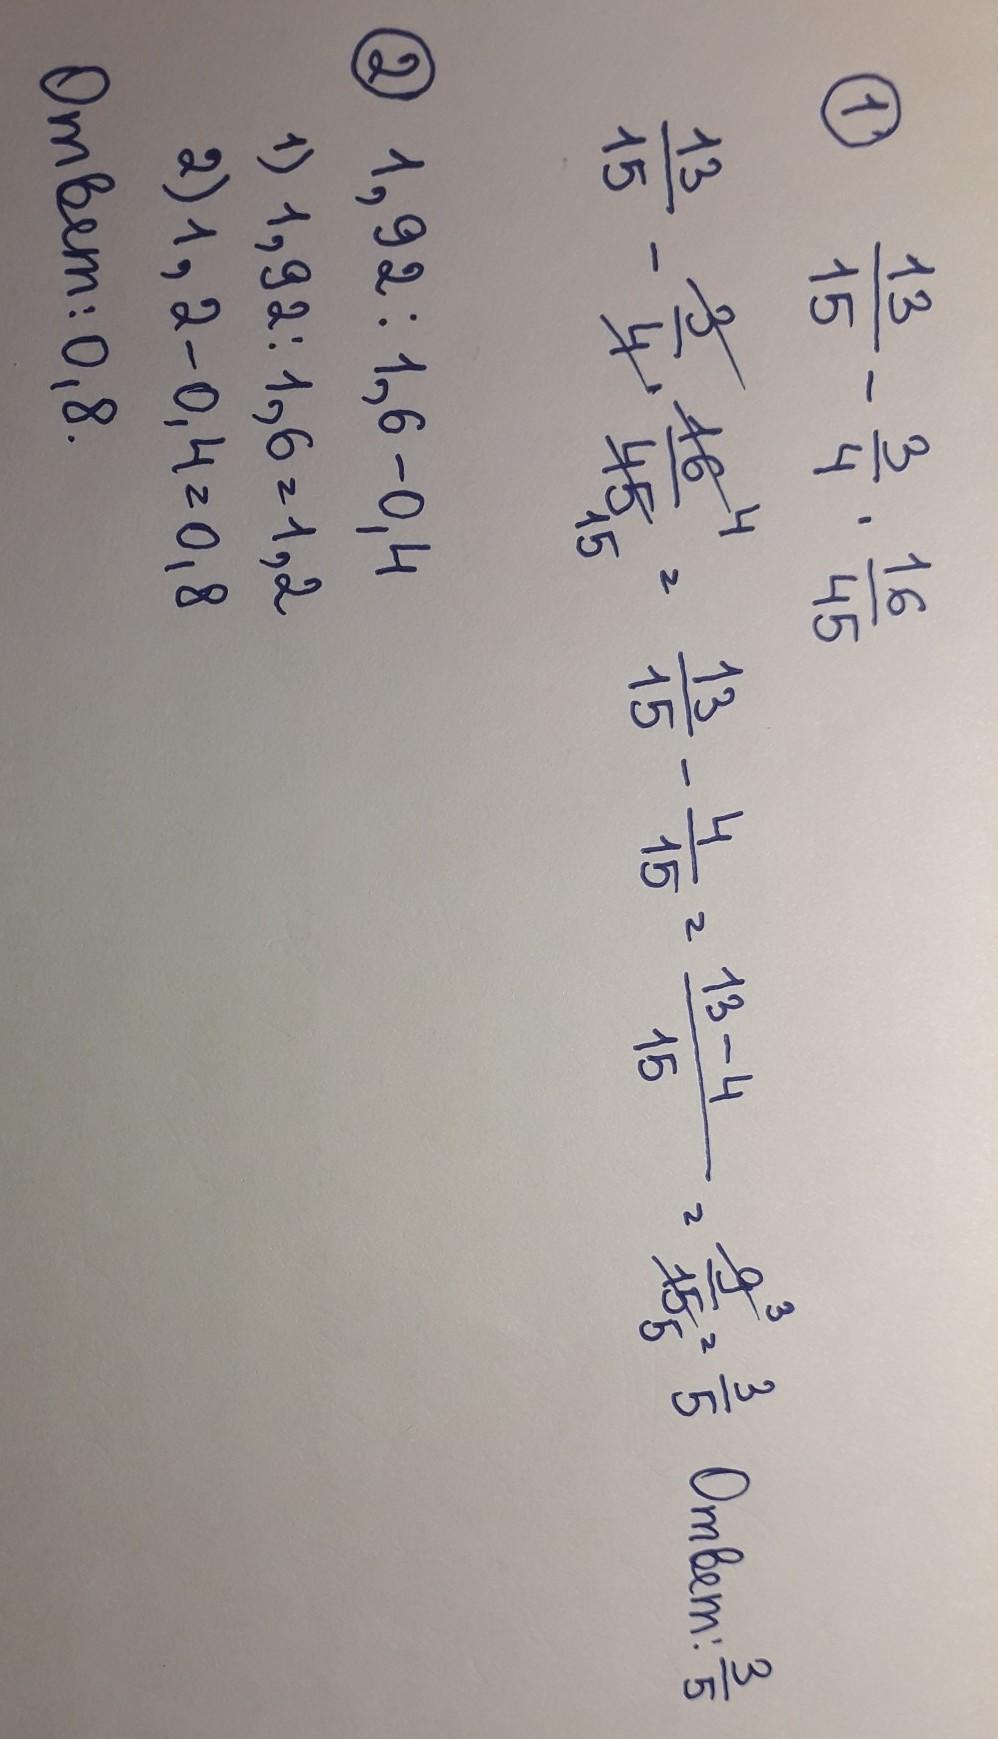 ① 13/15 - 3/4 · 16/45
13/15 - 3/4 · 16/45 4 15 = 13/15 - 4/15 = 13-4/15 = 9/15 3 5 = 3/5 Ответ: 3/5
② 1,92 : 1,6 - 0,4
1) 1,92 : 1,6 = 1,2
2) 1,2 - 0,4 = 0,8
Ответ: 0,8.